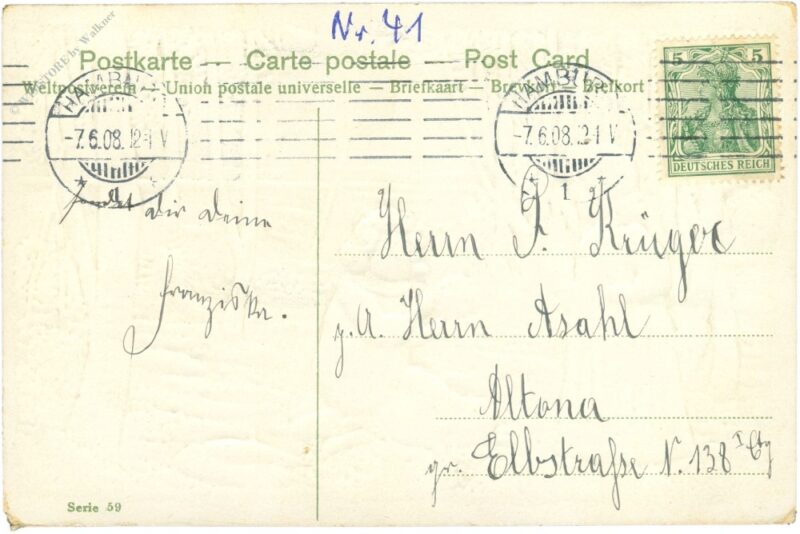 Nr. 41
Postkarte -- Carte postale -- Post Card
Weltpostverein — Union postale universelle — Briefkaart — Brevkort — Brefkort
HAMBURG
-7.6.08.12-1 V
1
HAMBURG
-7.6.08.12-1 V
1
5 5
DEUTSCHES REICH
dir deine
Franziska.
Herrn J. Krüger
p. A. Herrn Asahl
Altona
gr. Elbstraße N. 138 I Etg
Serie 59
STORE by Walkner